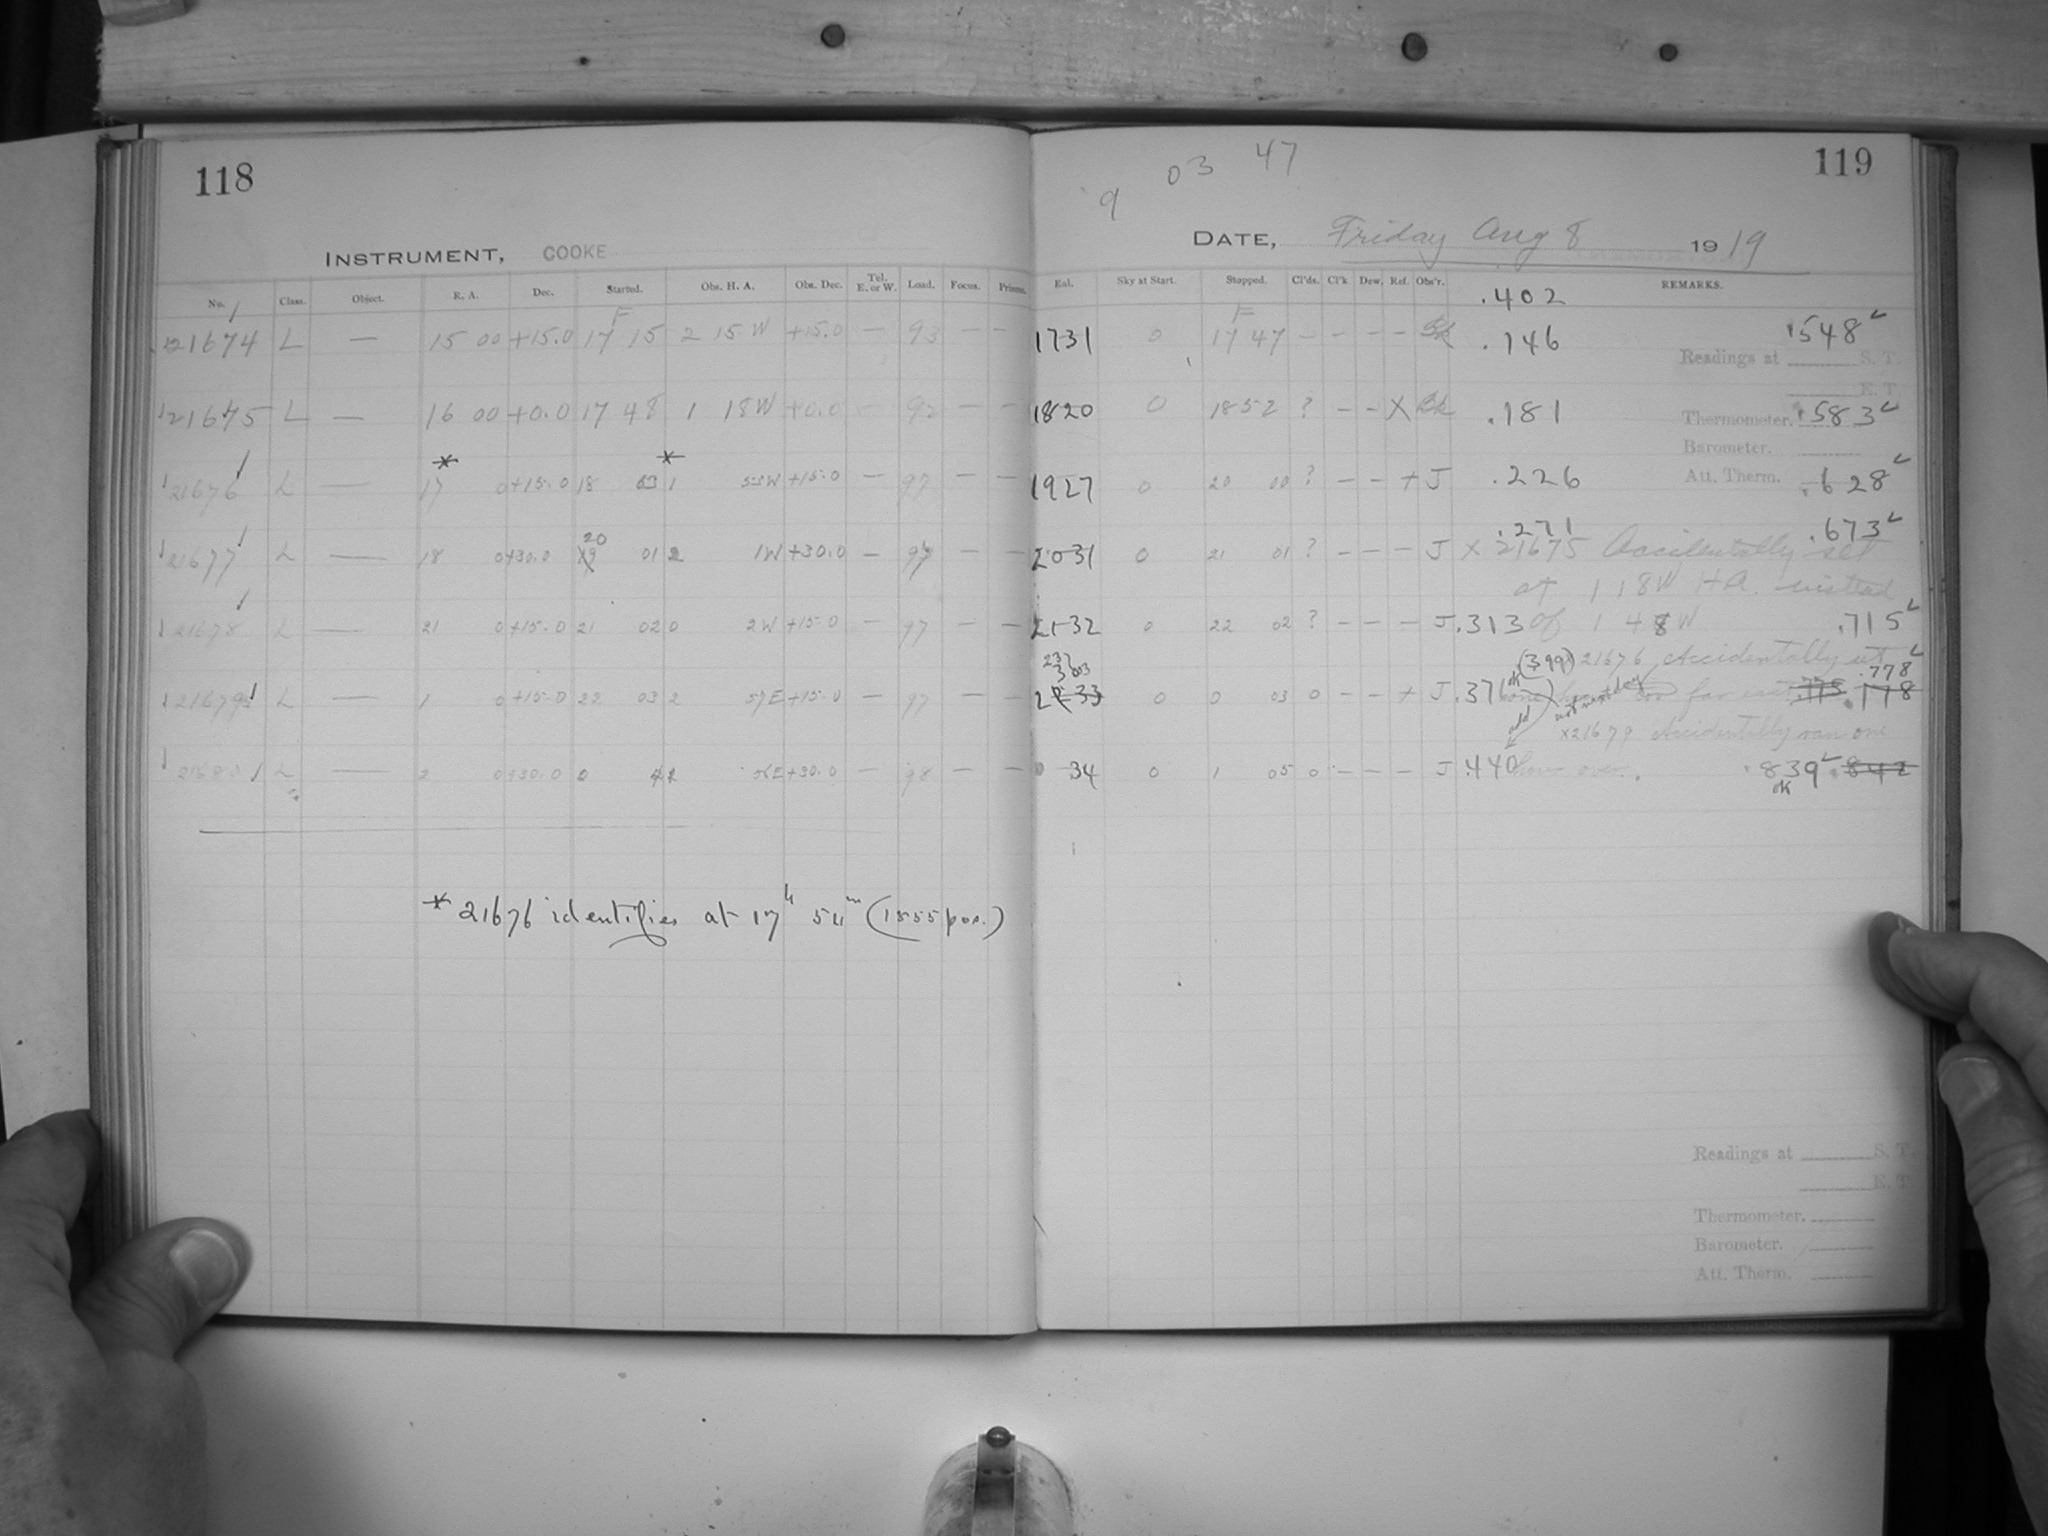 118
INSTRUMENT, COOKE
No. Class. Object. R. A. Dec. Started. Obs. H. A. Obs. Dec. Tel. E. or W. Load. Focus.
21674 L — 15 00 +15.0 17 15 2 15 W +15.0 — 93 — —
21675 L — 16 00 +0.0 17 48 1 18 W +0.0 — 92 — —
21676 L — 17 0 +15.0 18 53 W +15.0 — 97 — —
21677 L — 18 0 +30.0 20 01 2 1W +30.0 — — —
21678 L — 21 0 +15.0 21 02 0 2W +15.0 — 97 — —
21679 L — 1 0 +15.0 22 03 2 57E +15.0 — 97 — —
21680 L — 2 0 +30.0 0 +30.0 — 98 — —
* 21676 identifies at 17h 54m (1855 pos.)
9 03 47
119
DATE, Friday Aug 8 1919
Sky at Start. Stopped. Cl'ds. Cl'k Dew. Ref. Obs'r. REMARKS.
.402
1731 0 17 47 — — — — .146 .548
Readings at S. T.
E. T.
1820 0 1852 ? — — X .181 Thermometer. .583
Barometer.
1927 0 20 00 ? — — + J .226 Att. Therm. .628
.271 .673
2031 0 21 01 ? — — — J × 21675 Accidentally set
at 1 18W H.A. instead
2132 0 22 02 ? — — — J .313 of 1 48 W .715
(399) 21676 Accidentally set
.778
0 0 03 0 — — + J .376 far .178
×21679 Accidentally ran one
34 0 1 05 0 — — — J .440 hour over. .839 .842
ok
Readings at S. T.
E. T.
Thermometer.
Barometer.
Att. Therm.